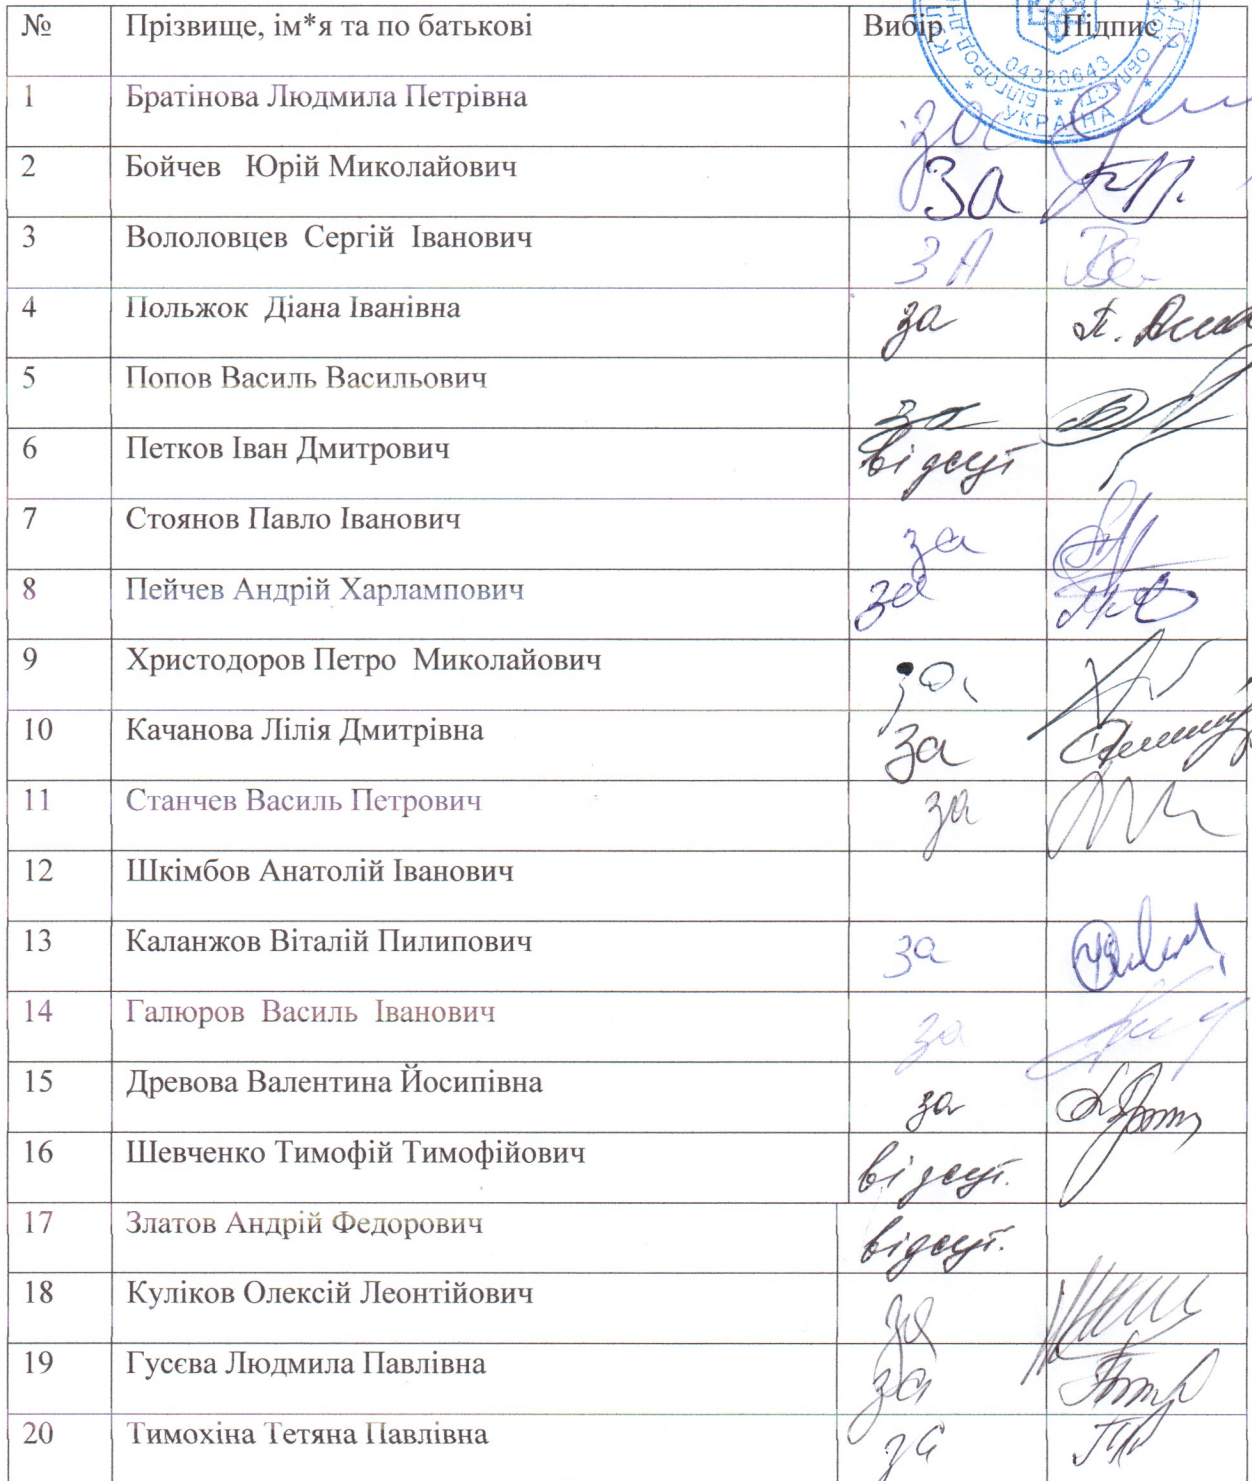 № Прізвище, ім*я та по батькові Вибір Підпис
04380643
УКРАЇНА
1 Братінова Людмила Петрівна за
2 Бойчев Юрій Миколайович за
3 Вололовцев Сергій Іванович ЗА
4 Польжок Діана Іванівна за
5 Попов Василь Васильович за
6 Петков Іван Дмитрович відсут
7 Стоянов Павло Іванович за
8 Пейчев Андрій Харлампович за
9 Христодоров Петро Миколайович за
10 Качанова Лілія Дмитрівна за
11 Станчев Василь Петрович за
12 Шкімбов Анатолій Іванович
13 Каланжов Віталій Пилипович за
14 Галюров Василь Іванович за
15 Древова Валентина Йосипівна за
16 Шевченко Тимофій Тимофійович відсут.
17 Златов Андрій Федорович відсут.
18 Куліков Олексій Леонтійович за
19 Гусєва Людмила Павлівна за
20 Тимохіна Тетяна Павлівна за